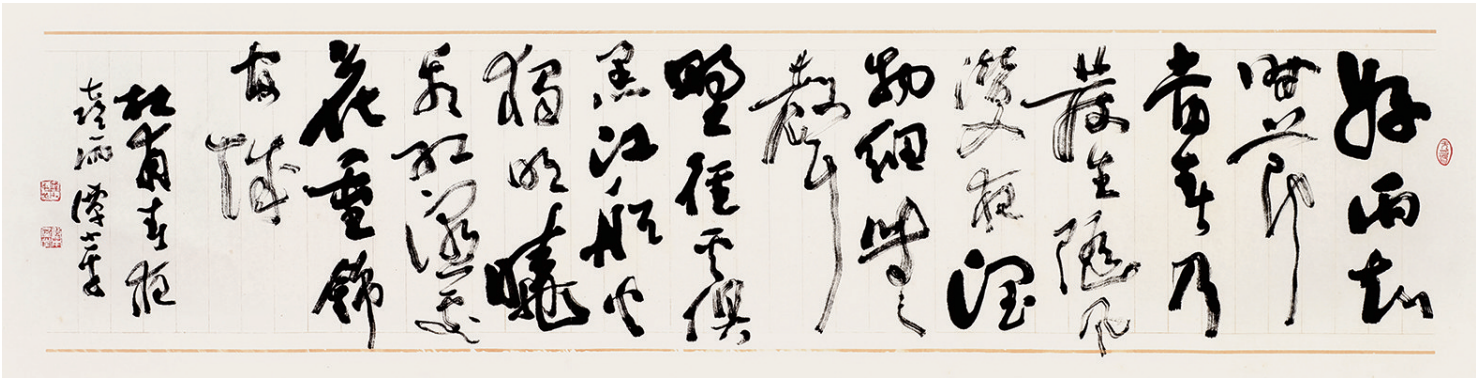 好雨知
時節
當春乃
發生隨風
潛入夜潤
物細無
聲
野徑雲俱
黑江船火
獨明曉
看紅濕處
花重錦
官城
杜甫春夜
喜雨